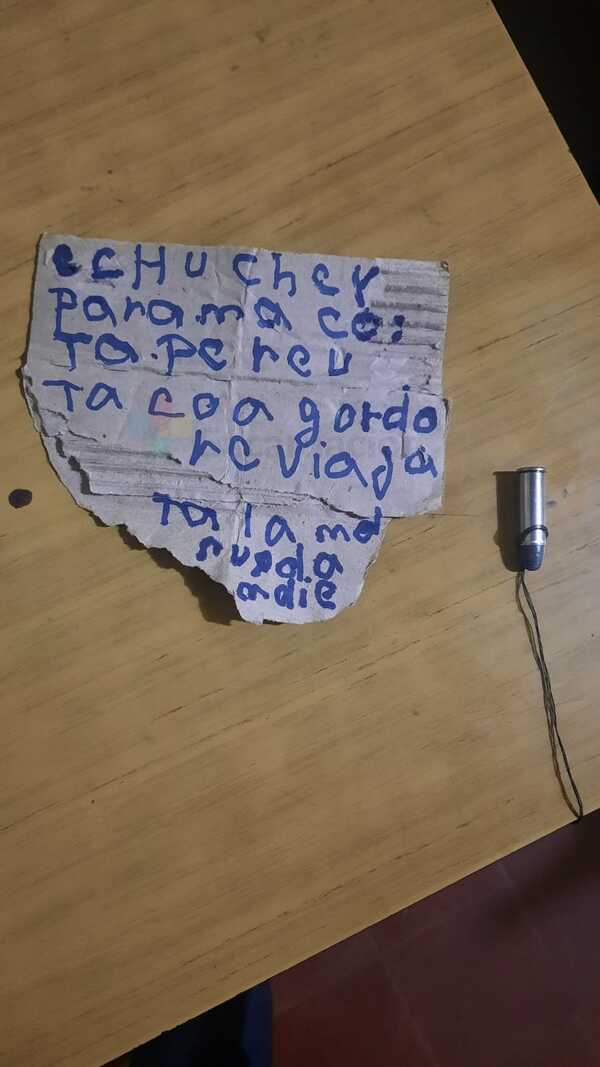 ecHucher
para.ma co:
Ta.pereu
Ta coa gordo
reviaja
Ta la md
rueda
adie